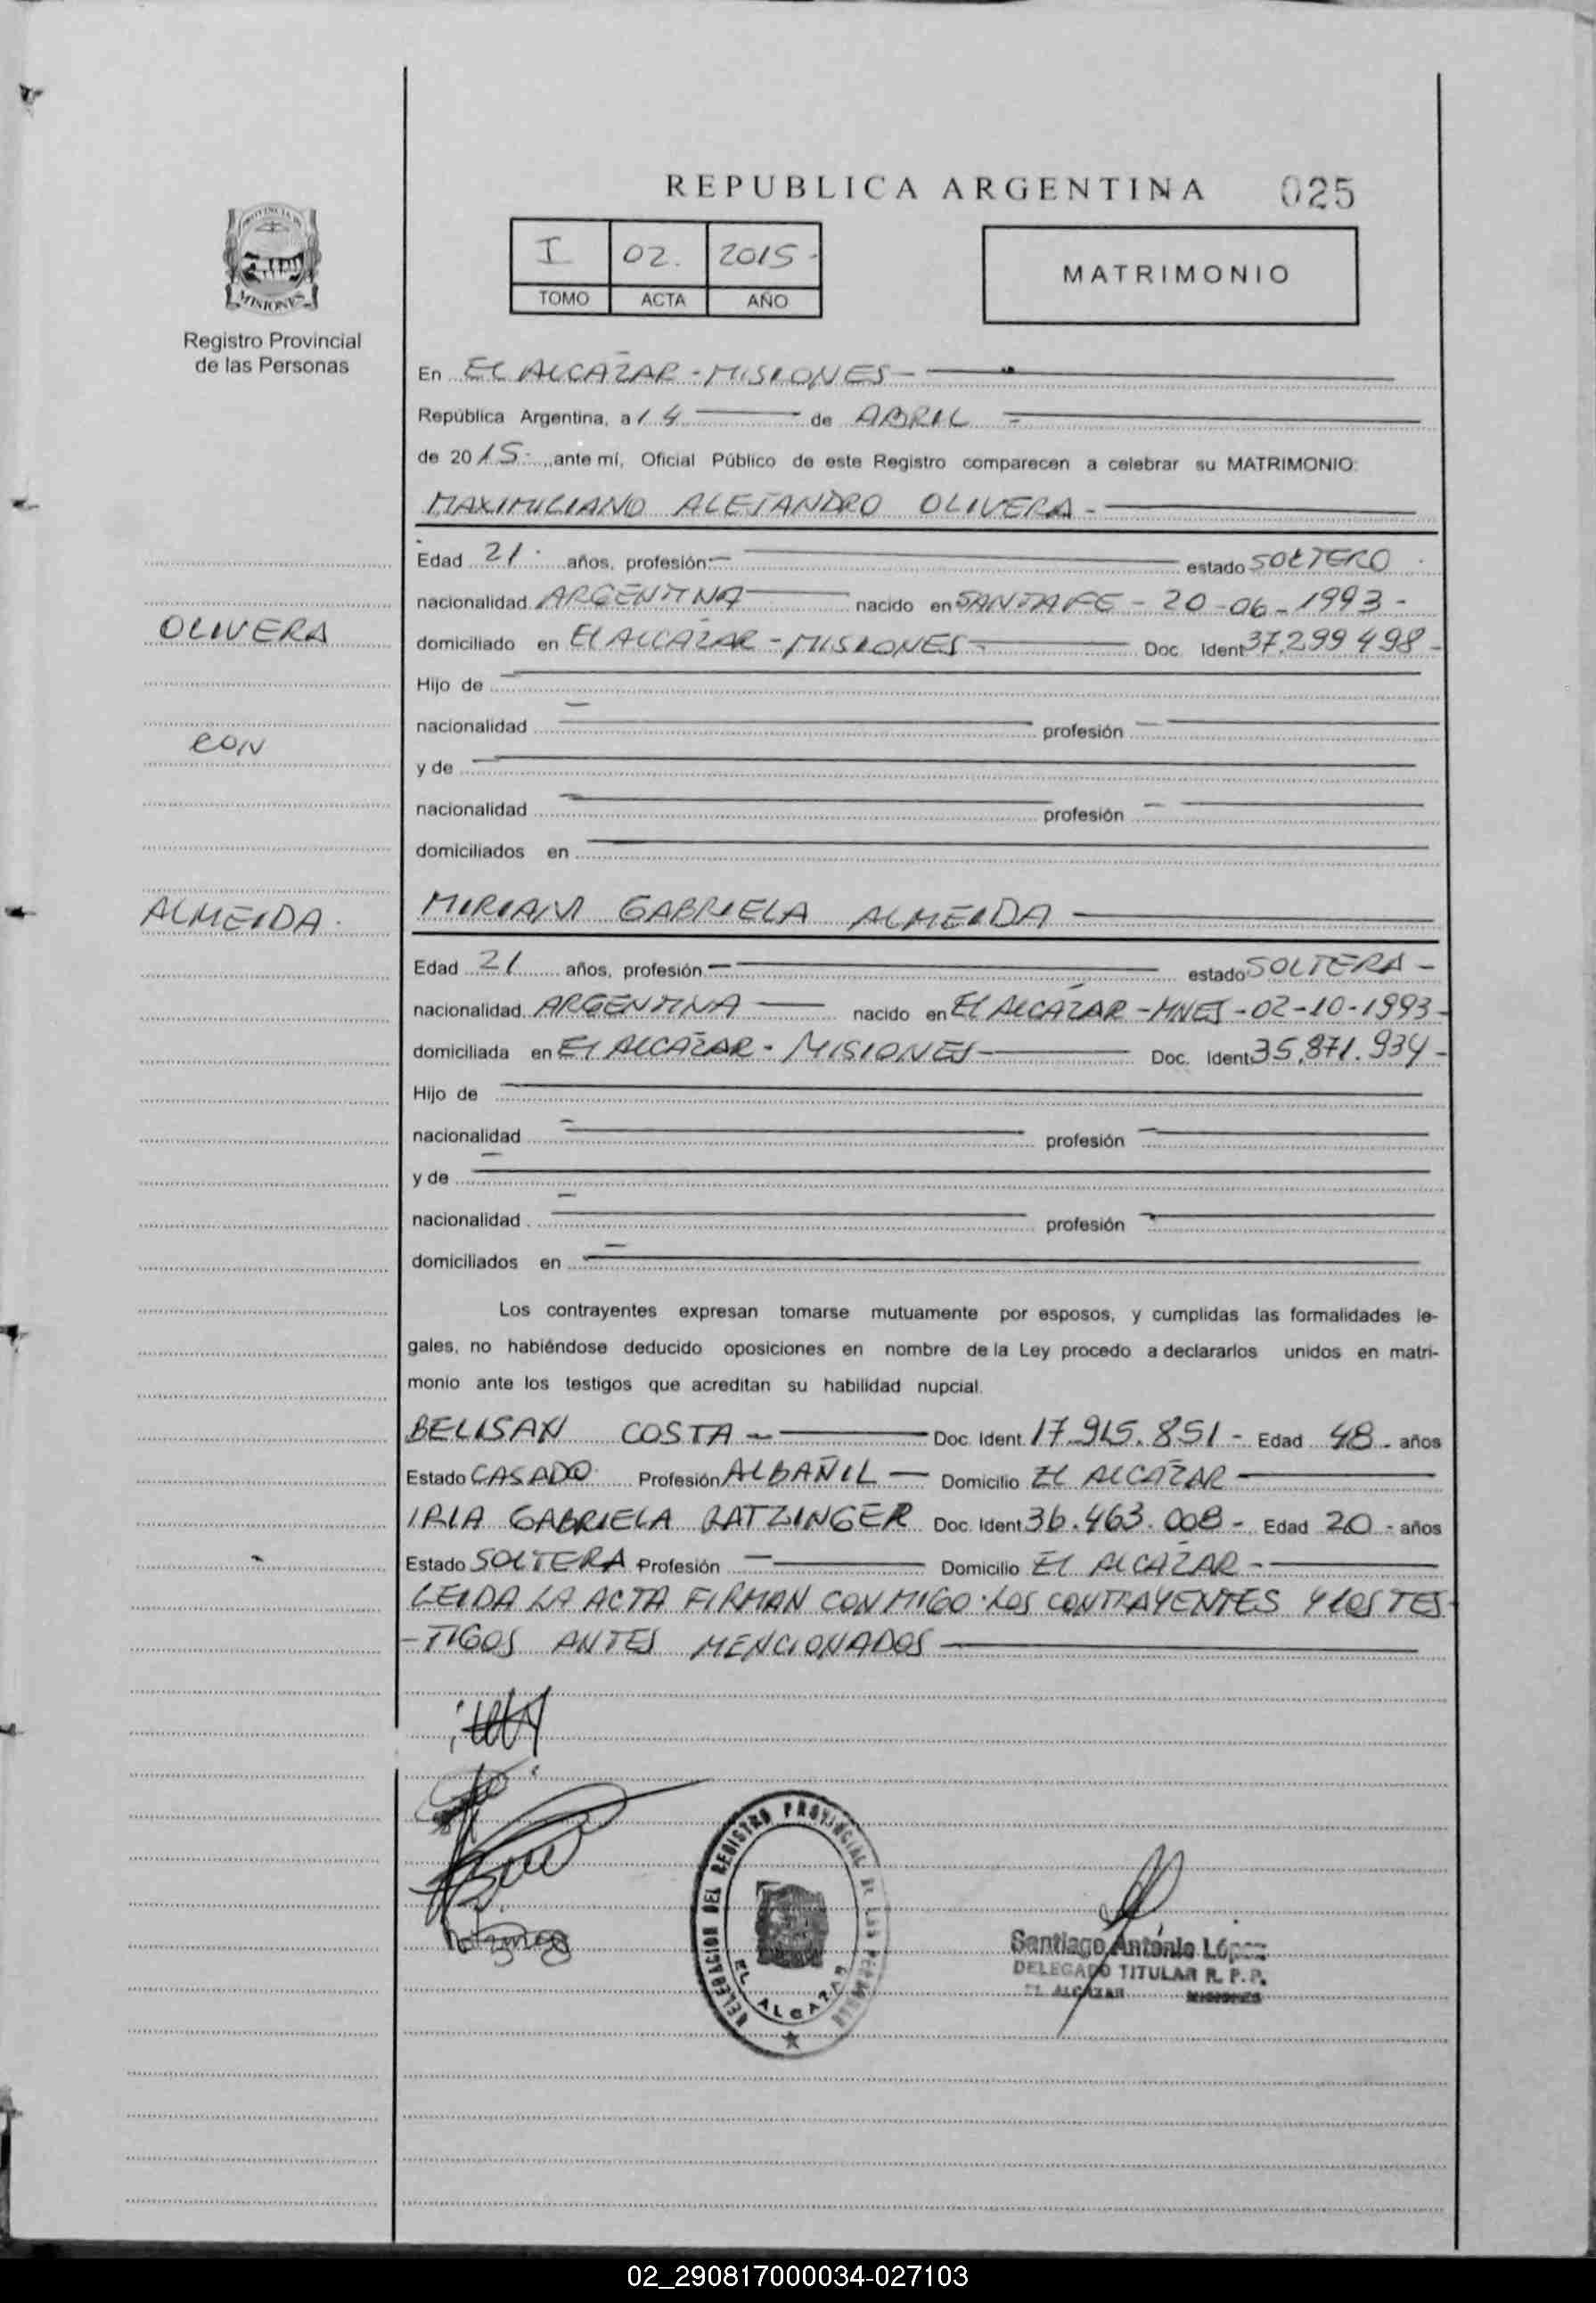 REPUBLICA ARGENTINA 025
I 02. 2015-
TOMO ACTA AÑO
MATRIMONIO
PROVINCIA DE
MISIONES
Registro Provincial
de las Personas
En EL ALCAZAR - MISIONES -
República Argentina, a 14 de ABRIL -
de 2015- ante mí, Oficial Público de este Registro comparecen a celebrar su MATRIMONIO:
MAXIMILIANO ALEJANDRO OLIVERA -
Edad 21- años, profesión - estado SOLTERO
nacionalidad ARGENTINA nacido en SANTA FE - 20-06-1993-
OLIVERA
domiciliado en El ALCAZAR - MISIONES - Doc. Ident 37.299 498-
Hijo de
nacionalidad profesión
CON
y de
nacionalidad profesión
domiciliados en
ALMEIDA.
MIRIAM GABRIELA ALMEIDA
Edad 21 años, profesión - estado SOLTERA -
nacionalidad ARGENTINA nacido en El ALCAZAR - MNES - 02-10-1993-
domiciliada en El ALCAZAR - MISIONES - Doc. Ident 35.871.934-
Hijo de
nacionalidad profesión
y de
nacionalidad profesión
domiciliados en
Los contrayentes expresan tomarse mutuamente por esposos, y cumplidas las formalidades le-
gales, no habiéndose deducido oposiciones en nombre de la Ley procedo a declararlos unidos en matri-
monio ante los testigos que acreditan su habilidad nupcial.
BELISAN COSTA - Doc. Ident. 17.915.851- Edad 48- años
Estado CASADO. Profesión ALBAÑIL - Domicilio EL ALCAZAR -
IRIA GABRIELA RATZINGER Doc. Ident 36.463.008- Edad 20- años
Estado SOLTERA Profesión - Domicilio El ALCAZAR -
LEIDA LA ACTA FIRMAN CONMIGO LOS CONTRAYENTES Y LOS TES-
-TIGOS ANTES MENCIONADOS
DELEGACION DEL REGISTRO PROVINCIAL DE LAS PERSONAS
EL ALCAZAR
Santiago Antonio López
DELEGADO TITULAR R. P. P.
EL ALCAZAR MISIONES
02_290817000034-027103